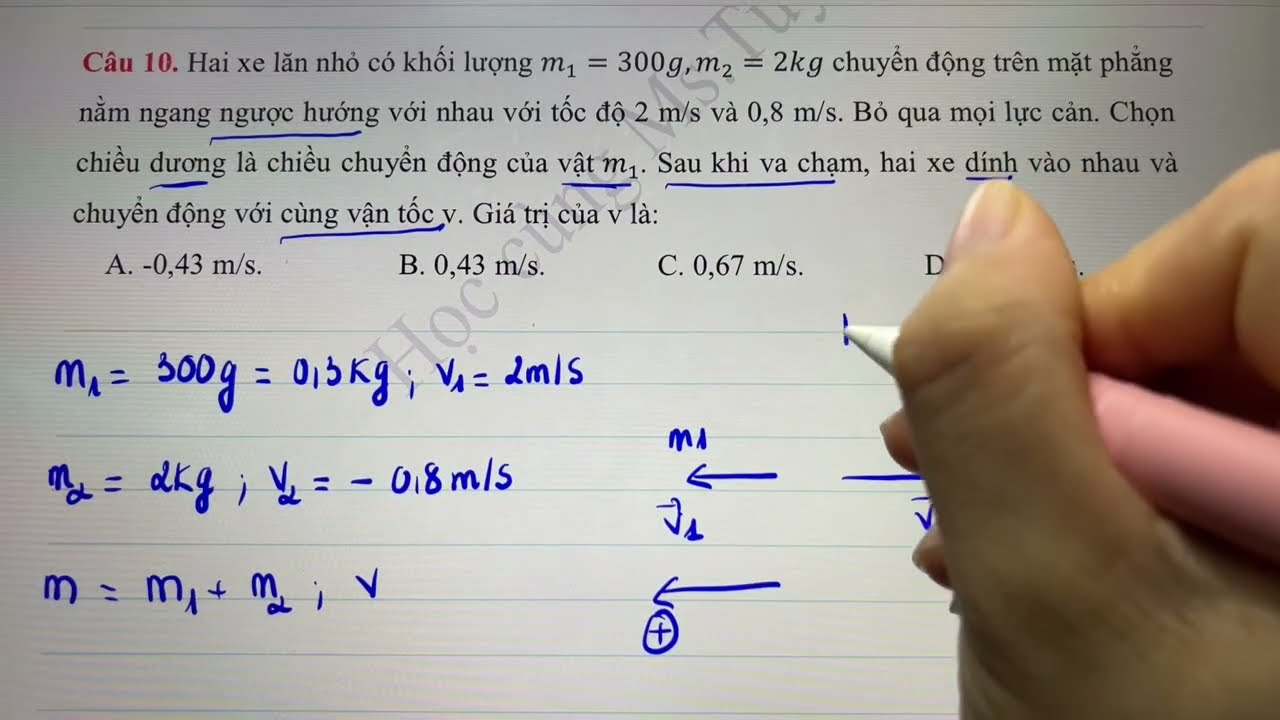 Câu 10. Hai xe lăn nhỏ có khối lượng m₁ = 300g, m₂ = 2kg chuyển động trên mặt phẳng
nằm ngang ngược hướng với nhau với tốc độ 2 m/s và 0,8 m/s. Bỏ qua mọi lực cản. Chọn
chiều dương là chiều chuyển động của vật m₁. Sau khi va chạm, hai xe dính vào nhau và
chuyển động với cùng vận tốc v. Giá trị của v là:
A. -0,43 m/s. B. 0,43 m/s. C. 0,67 m/s. D
Học cùng Ms.
m₁ = 300g = 0,3kg ; v₁ = 2m/s
m₁
m₂ = 2kg ; v₂ = - 0,8m/s
v⃗₁
m = m₁ + m₂ ; v
+